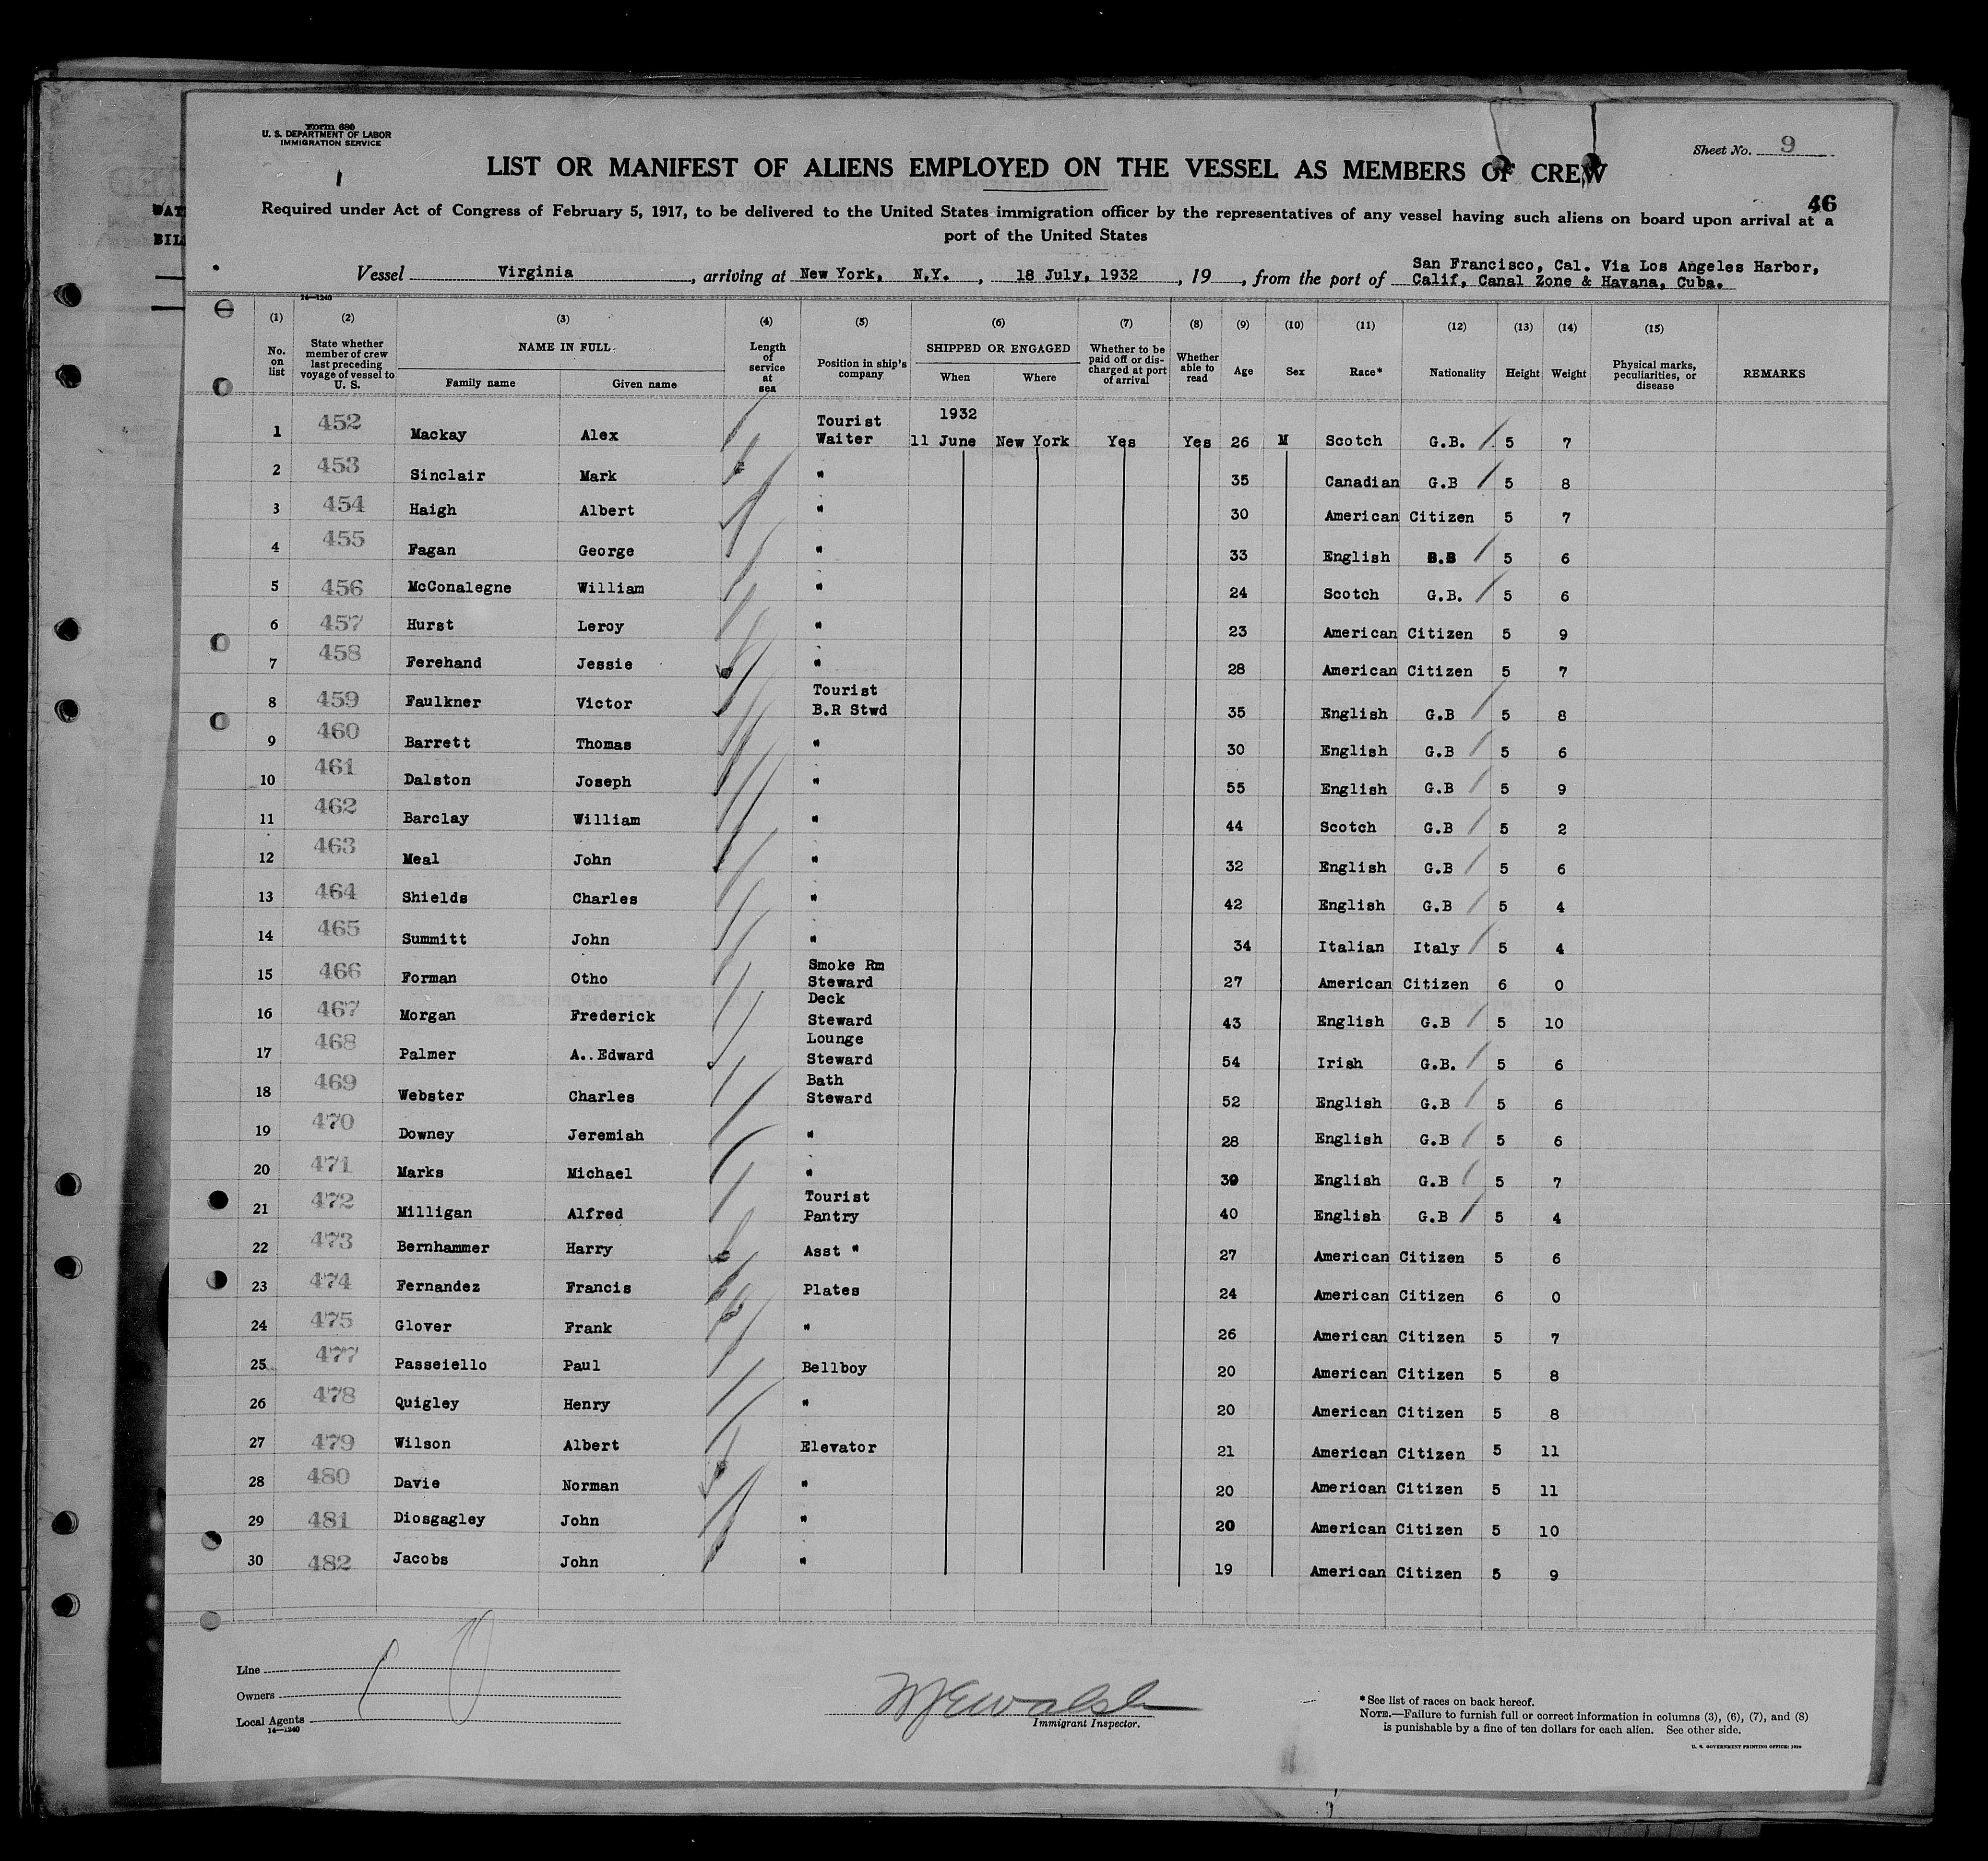 Form 680
U. S. DEPARTMENT OF LABOR
IMMIGRATION SERVICE
Sheet No. 9
LIST OR MANIFEST OF ALIENS EMPLOYED ON THE VESSEL AS MEMBERS OF CREW
46
Required under Act of Congress of February 5, 1917, to be delivered to the United States immigration officer by the representatives of any vessel having such aliens on board upon arrival at a
port of the United States
Vessel Virginia, arriving at New York, N.Y., 18 July, 1932, 19, from the port of San Francisco, Cal. Via Los Angeles Harbor,
Calif, Canal Zone & Havana, Cuba.
14—1240
(1) (2) (3) (4) (5) (6) (7) (8) (9) (10) (11) (12) (13) (14) (15)
No. on list State whether member of crew last preceding voyage of vessel to U. S. NAME IN FULL Family name Given name Length of service at sea Position in ship's company SHIPPED OR ENGAGED When Where Whether to be paid off or discharged at port of arrival Whether able to read Age Sex Race* Nationality Height Weight Physical marks, peculiarities, or disease REMARKS
1 452 Mackay Alex Tourist Waiter 1932 11 June New York Yes Yes 26 M Scotch G.B. 5 7
2 453 Sinclair Mark " 35 Canadian G.B 5 8
3 454 Haigh Albert " 30 American Citizen 5 7
4 455 Fagan George " 33 English B.B 5 6
5 456 McConalegne William " 24 Scotch G.B. 5 6
6 457 Hurst Leroy " 23 American Citizen 5 9
7 458 Ferehand Jessie " 28 American Citizen 5 7
8 459 Faulkner Victor Tourist B.R Stwd 35 English G.B 5 8
9 460 Barrett Thomas " 30 English G.B 5 6
10 461 Dalston Joseph " 55 English G.B 5 9
11 462 Barclay William " 44 Scotch G.B 5 2
12 463 Meal John " 32 English G.B 5 6
13 464 Shields Charles " 42 English G.B 5 4
14 465 Summitt John " 34 Italian Italy 5 4
15 466 Forman Otho Smoke Rm Steward 27 American Citizen 6 0
16 467 Morgan Frederick Deck Steward 43 English G.B 5 10
17 468 Palmer A..Edward Lounge Steward 54 Irish G.B. 5 6
18 469 Webster Charles Bath Steward 52 English G.B 5 6
19 470 Downey Jeremiah " 28 English G.B 5 6
20 471 Marks Michael " 39 English G.B 5 7
21 472 Milligan Alfred Tourist Pantry 40 English G.B 5 4
22 473 Bernhammer Harry Asst " 27 American Citizen 5 6
23 474 Fernandez Francis Plates 24 American Citizen 6 0
24 475 Glover Frank " 26 American Citizen 5 7
25 477 Passeiello Paul Bellboy 20 American Citizen 5 8
26 478 Quigley Henry " 20 American Citizen 5 8
27 479 Wilson Albert Elevator 21 American Citizen 5 11
28 480 Davie Norman " 20 American Citizen 5 11
29 481 Diosgagley John " 20 American Citizen 5 10
30 482 Jacobs John " 19 American Citizen 5 9
Line
Owners
Local Agents
14—1240
Immigrant Inspector.
*See list of races on back hereof.
NOTE.—Failure to furnish full or correct information in columns (3), (6), (7), and (8)
is punishable by a fine of ten dollars for each alien. See other side.